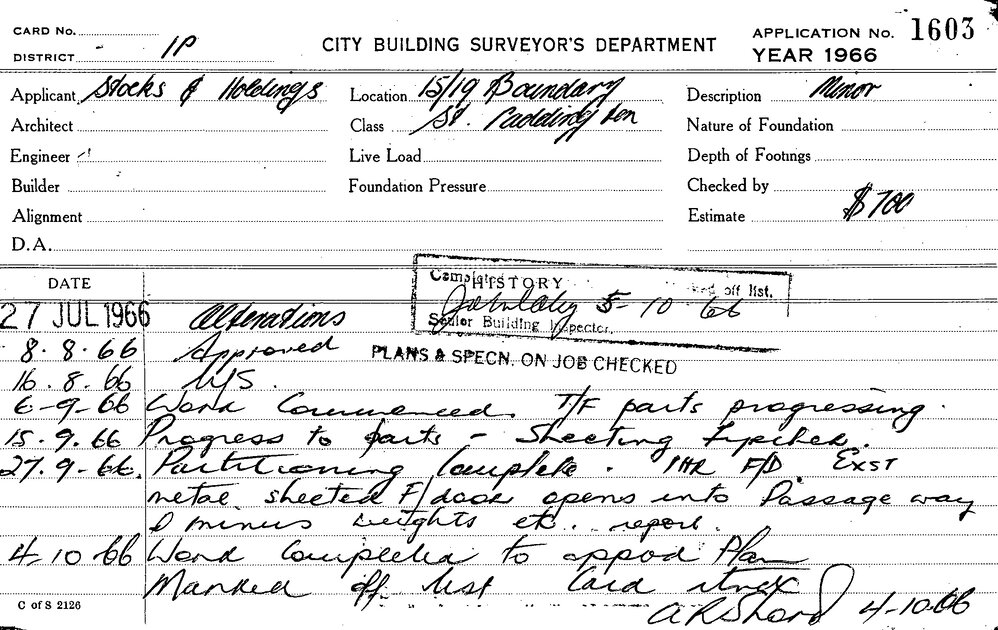 CARD No.
DISTRICT 1P
CITY BUILDING SURVEYOR'S DEPARTMENT
APPLICATION No. 1603
YEAR 1966
Applicant Stocks & Holdings
Location 15/19 Boundary
Description Minor
Architect
Class St. Paddington
Nature of Foundation
Engineer
Live Load
Depth of Footings
Builder
Foundation Pressure
Checked by
Alignment
Estimate $700
D.A.
DATE
HISTORY
Completed off list.
5-10 66
Senior Building Inspector.
27 JUL 1966 Alterations
PLANS & SPECN. ON JOB CHECKED
8.8.66 Approved
16.8.66 N/S.
6-9-66 Work Commenced. T/F parts progressing.
15.9.66 Progress to parts - Sheeting
27.9-66. Partitioning Complete. 1HR F/D. EXST
metal sheeted F/door opens into Passage way
& minus weights etc. report.
4-10-66 Work Completed to appvd Plan
Marked off list Card
4-10-66
C of S 2126